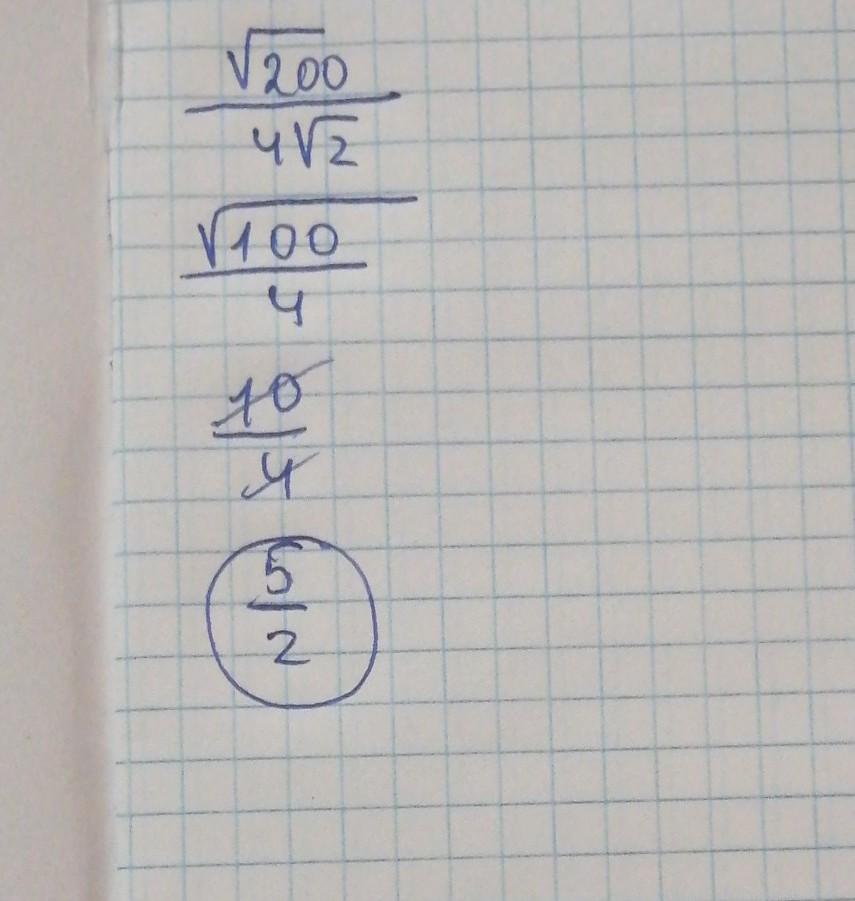 √200
4√2
√100
4
10
4
5
2